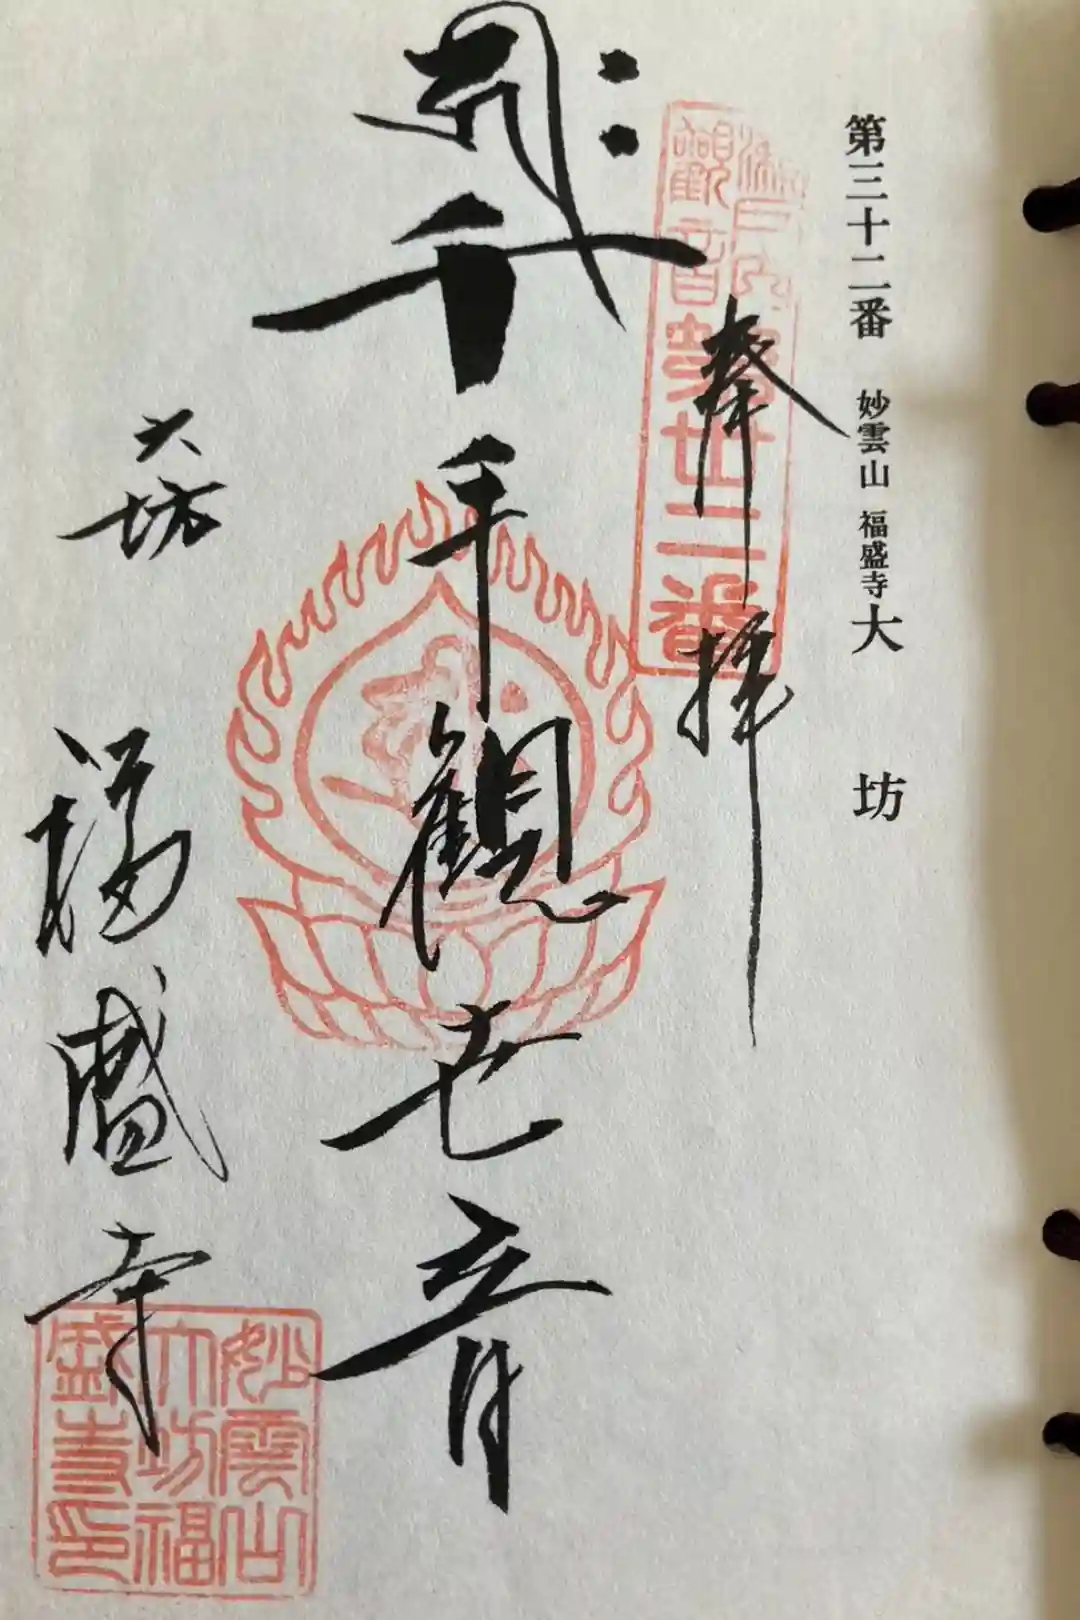 第三十二番 妙雲山 福盛寺 大坊
瀬戸内
觀音
第丗二番
奉拝
千手觀世音
大坊
福盛寺
妙雲山
大坊福
盛寺印